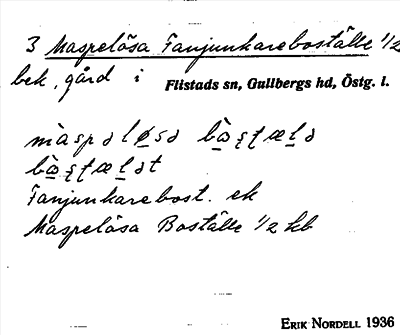 3 Maspelösa Fanjunkareboställe 1/2
bek, gård i Flistads sn, Gullbergs hd, Östg. l.
màspəløsa bὼṣṭæḷə
bὼṣṭæḷət
Fanjunkarebost. ek
Maspelösa Boställe 1/2 hb
ERIK NORDELL 1936